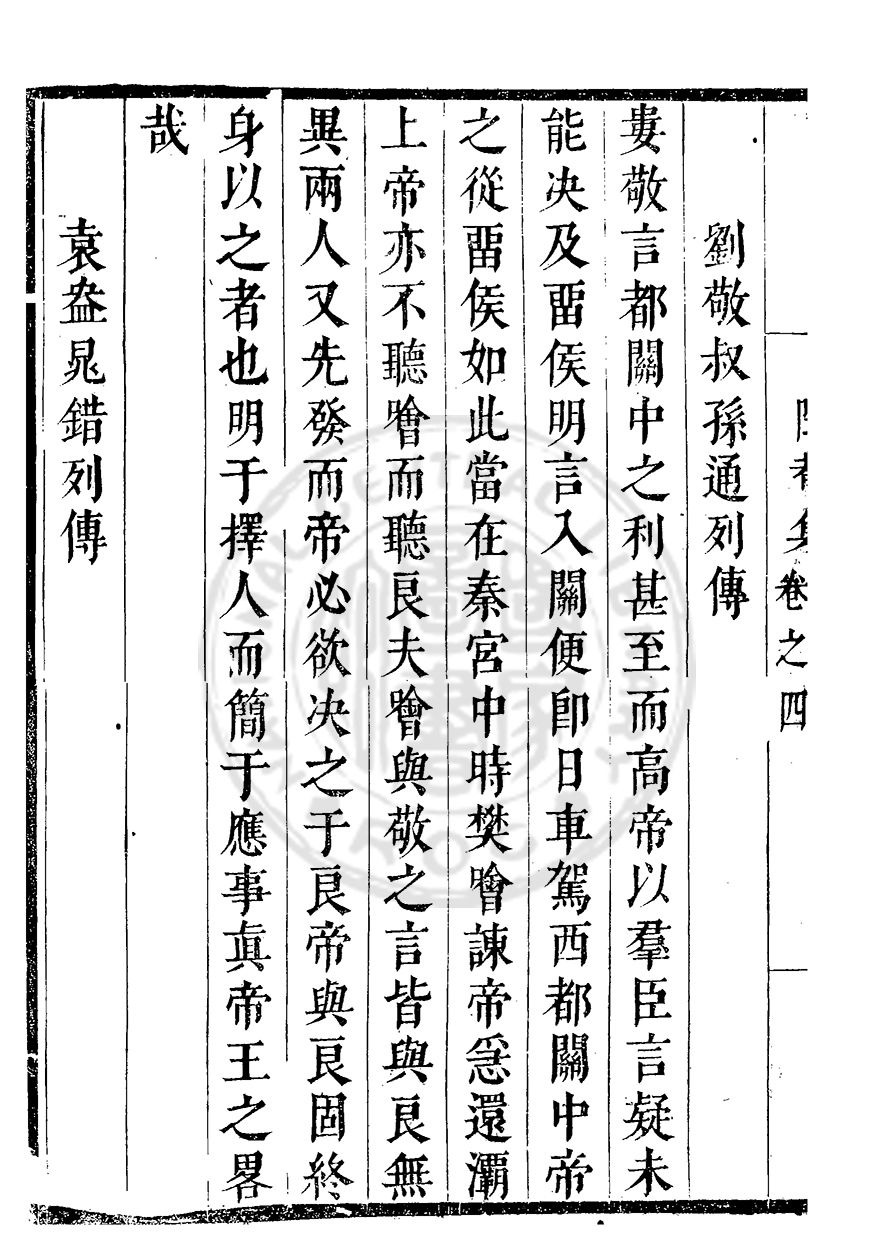 卷之四
劉敬叔孫通列傳
婁敬言都關中之利甚至而高帝以羣臣言疑未
能决及畱侯明言入關便卽日車駕西都關中帝
之從畱侯如此當在秦宮中時樊噲諫帝急還灞
上帝亦不聽噲而聽良夫噲與敬之言皆與良無
異兩人又先發而帝必欲决之于良帝與良固終
身以之者也明于擇人而簡于應事眞帝王之畧
哉
袁盎晁錯列傳